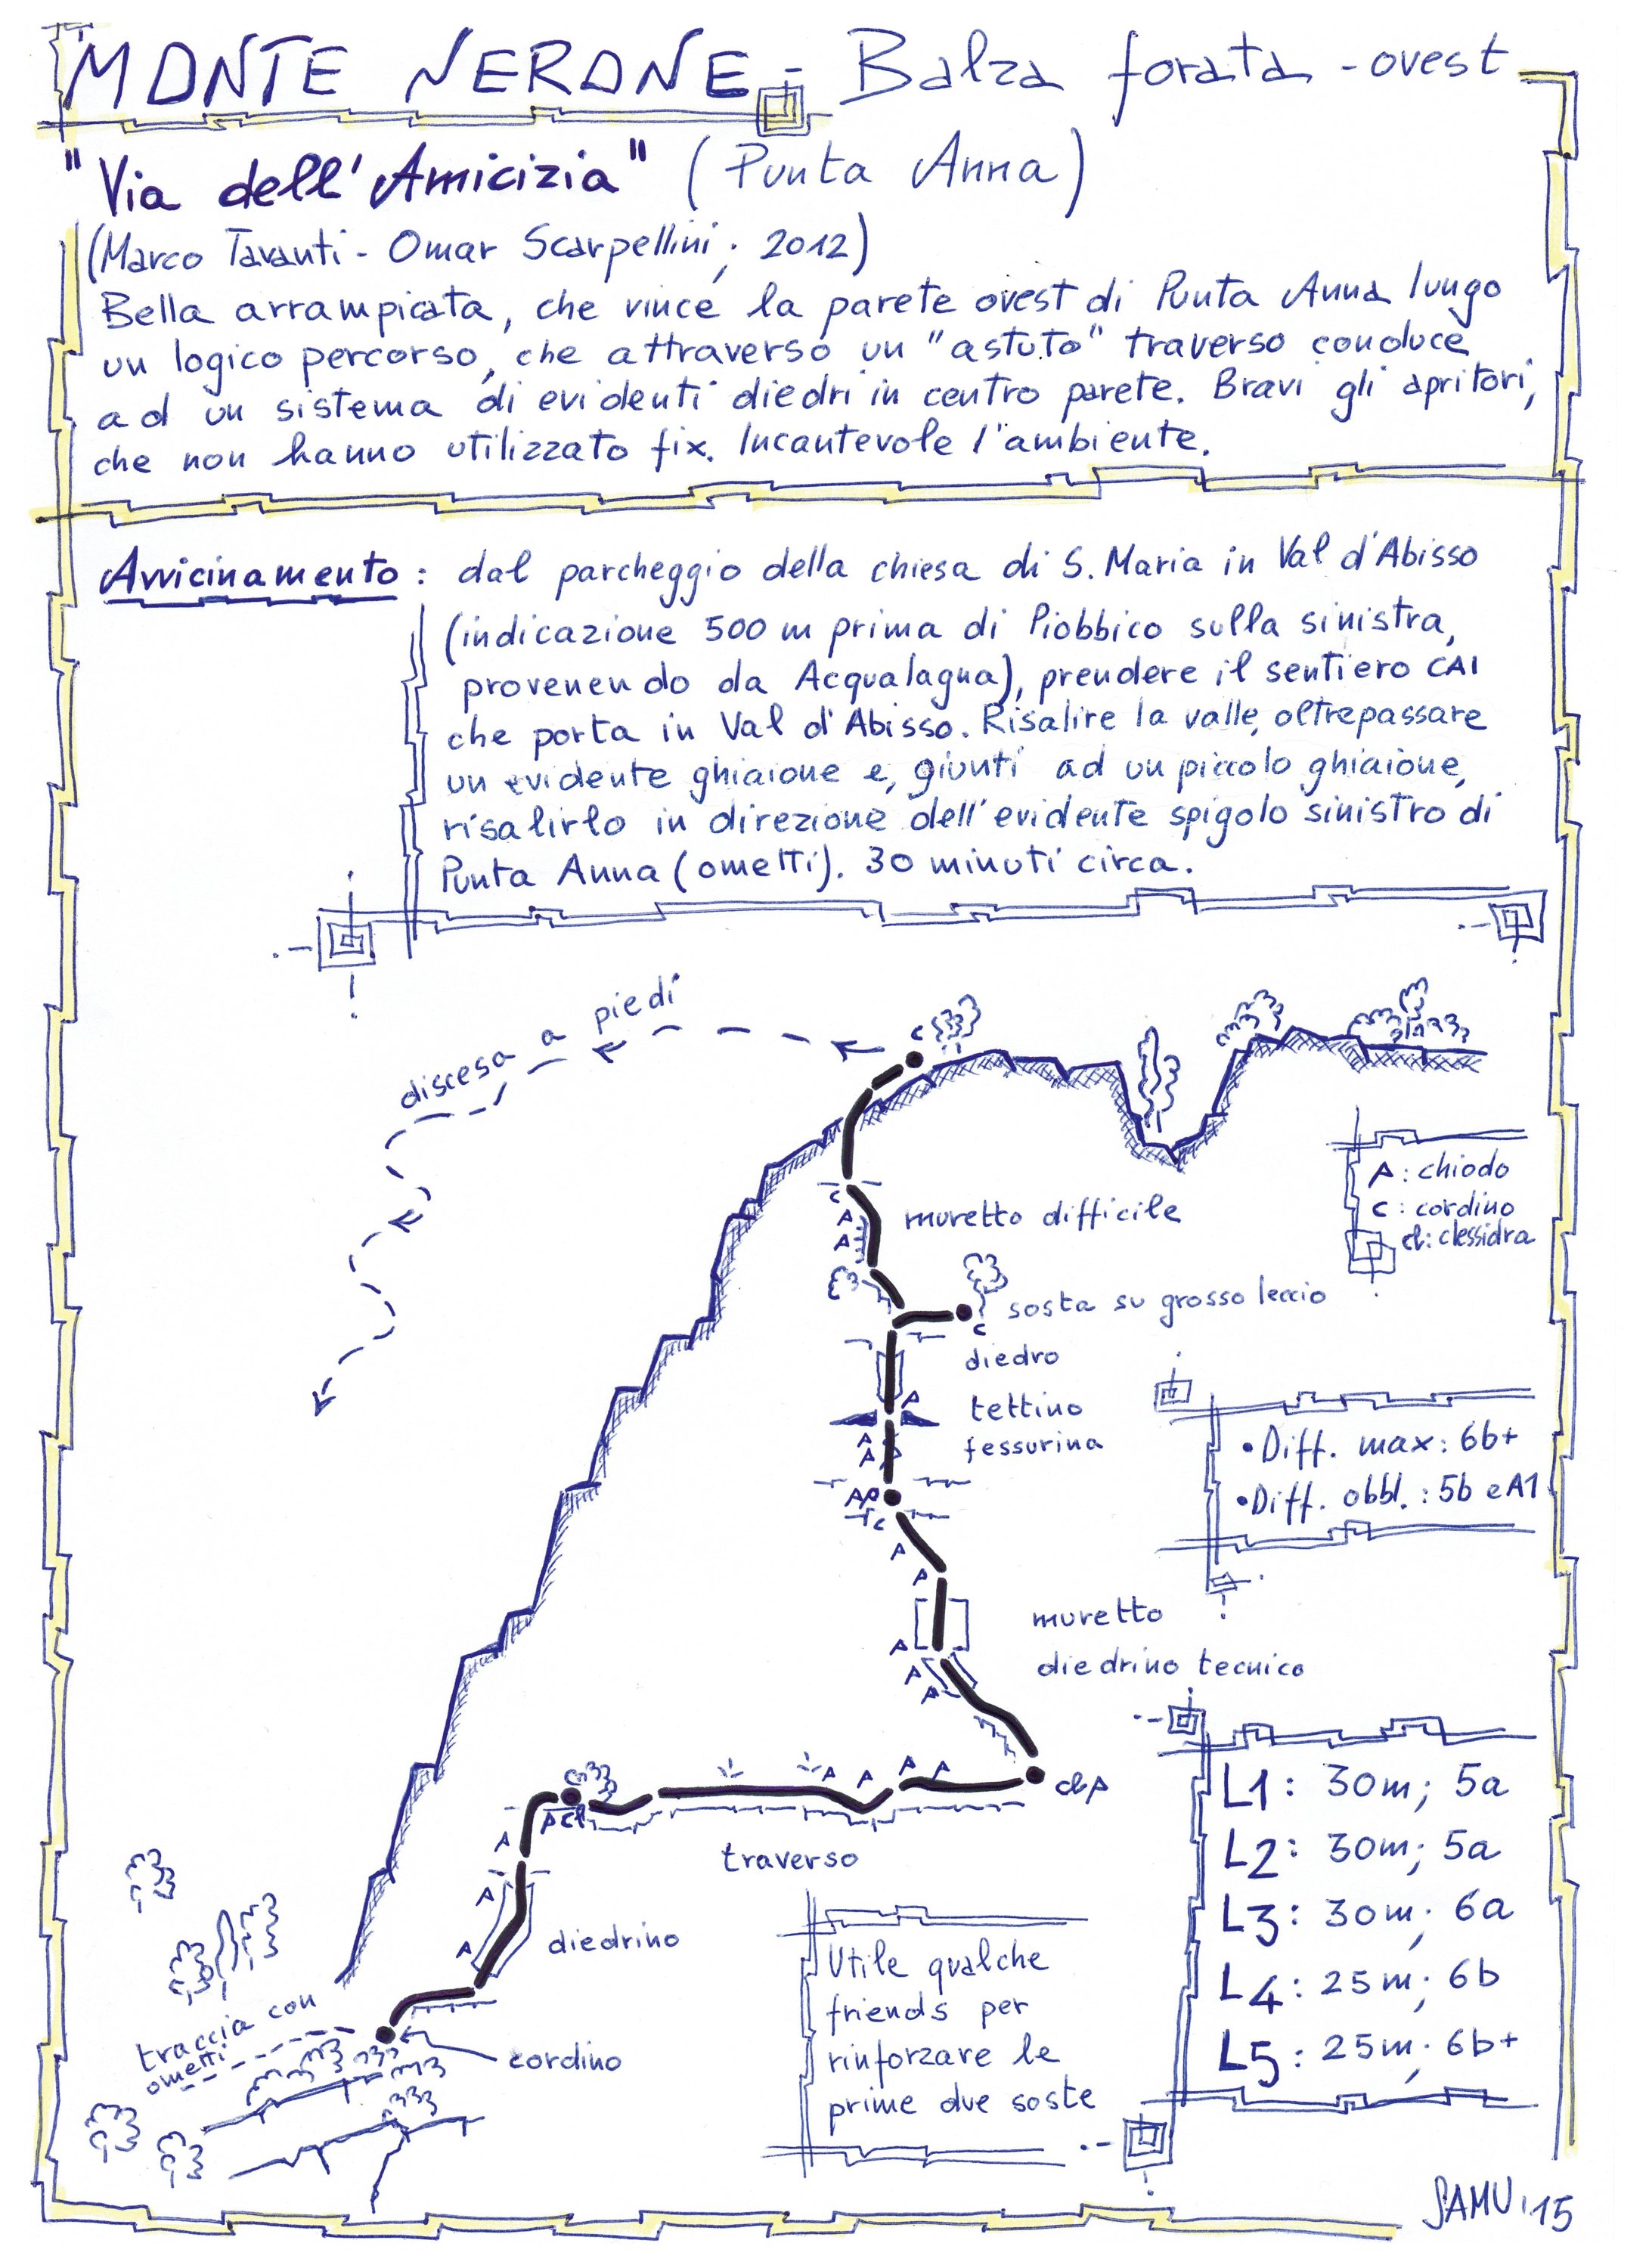 MONTE NERONE - Balza forata - ovest
"Via dell'Amicizia" (Punta Anna)
(Marco Tavanti - Omar Scarpellini; 2012)
Bella arrampicata, che vince la parete ovest di Punta Anna lungo
un logico percorso, che attraverso un "astuto" traverso conduce
ad un sistema di evidenti diedri in centro parete. Bravi gli apritori,
che non hanno utilizzato fix. Incantevole l'ambiente.
Avvicinamento: dal parcheggio della chiesa di S. Maria in Val d'Abisso
(indicazione 500 m prima di Piobbico sulla sinistra,
provenendo da Acqualagna), prendere il sentiero CAI
che porta in Val d'Abisso. Risalire la valle, oltrepassare
un evidente ghiaione e, giunti ad un piccolo ghiaione,
risalirlo in direzione dell'evidente spigolo sinistro di
Punta Anna (ometti). 30 minuti circa.
discesa a piedi
c
A: chiodo
c: cordino
cl: clessidra
c
A
A
muretto difficile
sosta su grosso leccio
c
diedro
A
tettino
A
A
fessurina
• Diff. max: 6b+
• Diff. obbl.: 5b e A1
AA
c
A
A
muretto
A
diedrino tecnico
A
A
A A A A
clA
A cl
traverso
A
A
A
diedrino
traccia con
ometti
cordino
Utile qualche
friends per
rinforzare le
prime due soste
L1: 30m; 5a
L2: 30m; 5a
L3: 30m; 6a
L4: 25m; 6b
L5: 25m; 6b+
SAMU '15